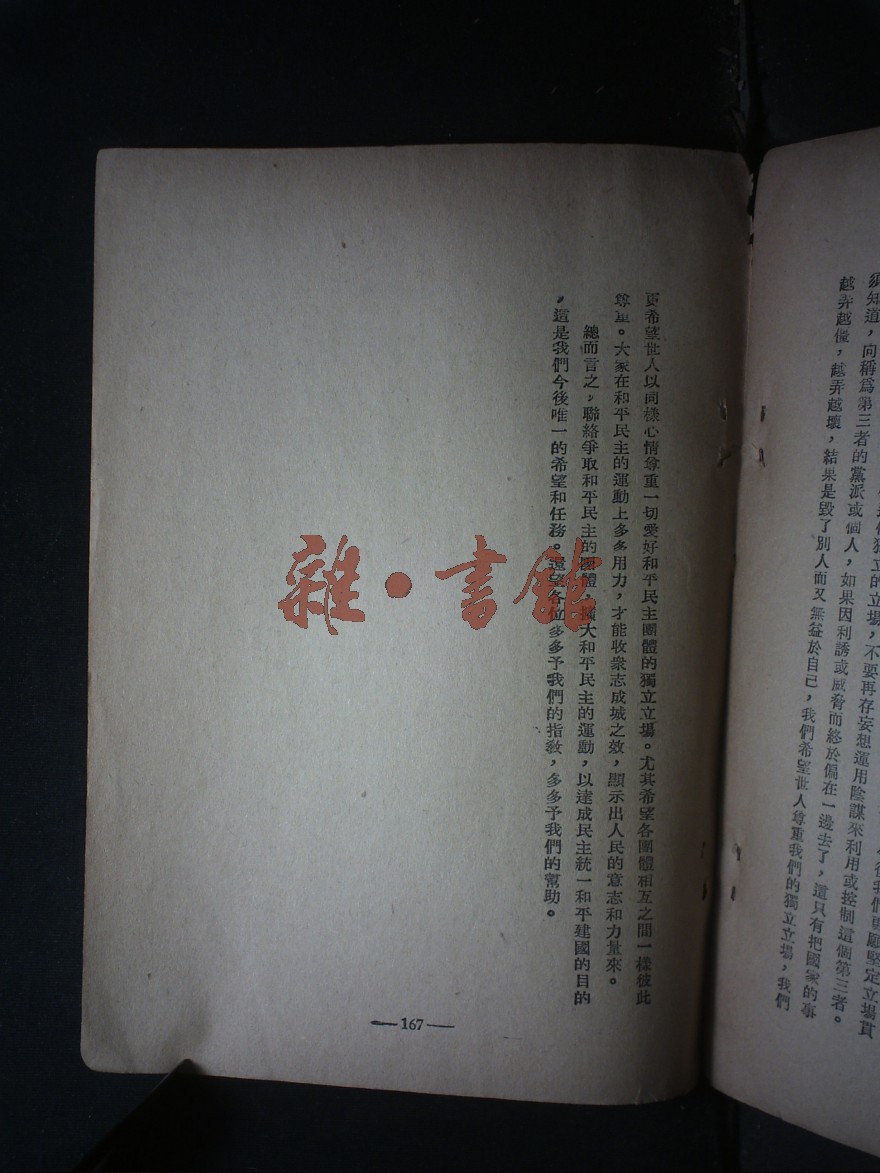 後我們更願堅定立場貫
獨立的立場，不要再存妄想運用陰謀來利用或控制這個第三者。
須知道，向稱爲第三者的黨派或個人，如果因利誘或威脅而終於偏在一邊去了，這只有把國家的事
越弄越僵，越弄越壞，結果是毀了別人而又無益於自己，我們希望世人尊重我們的獨立立場，我們
更希望世人以同樣心情尊重一切愛好和平民主團體的獨立立場。尤其希望各團體相互之間一樣彼此
尊重。大家在和平民主的運動上多多用力，才能收衆志成城之效，顯示出人民的意志和力量來。
總而言之，聯絡爭取和平民主的團體，擴大和平民主的運動，以達成民主統一和平建國的目的
，這是我們今後唯一的希望和任務。還望各位多多予我們的指教，多多予我們的幫助。
—167—
雜·書館